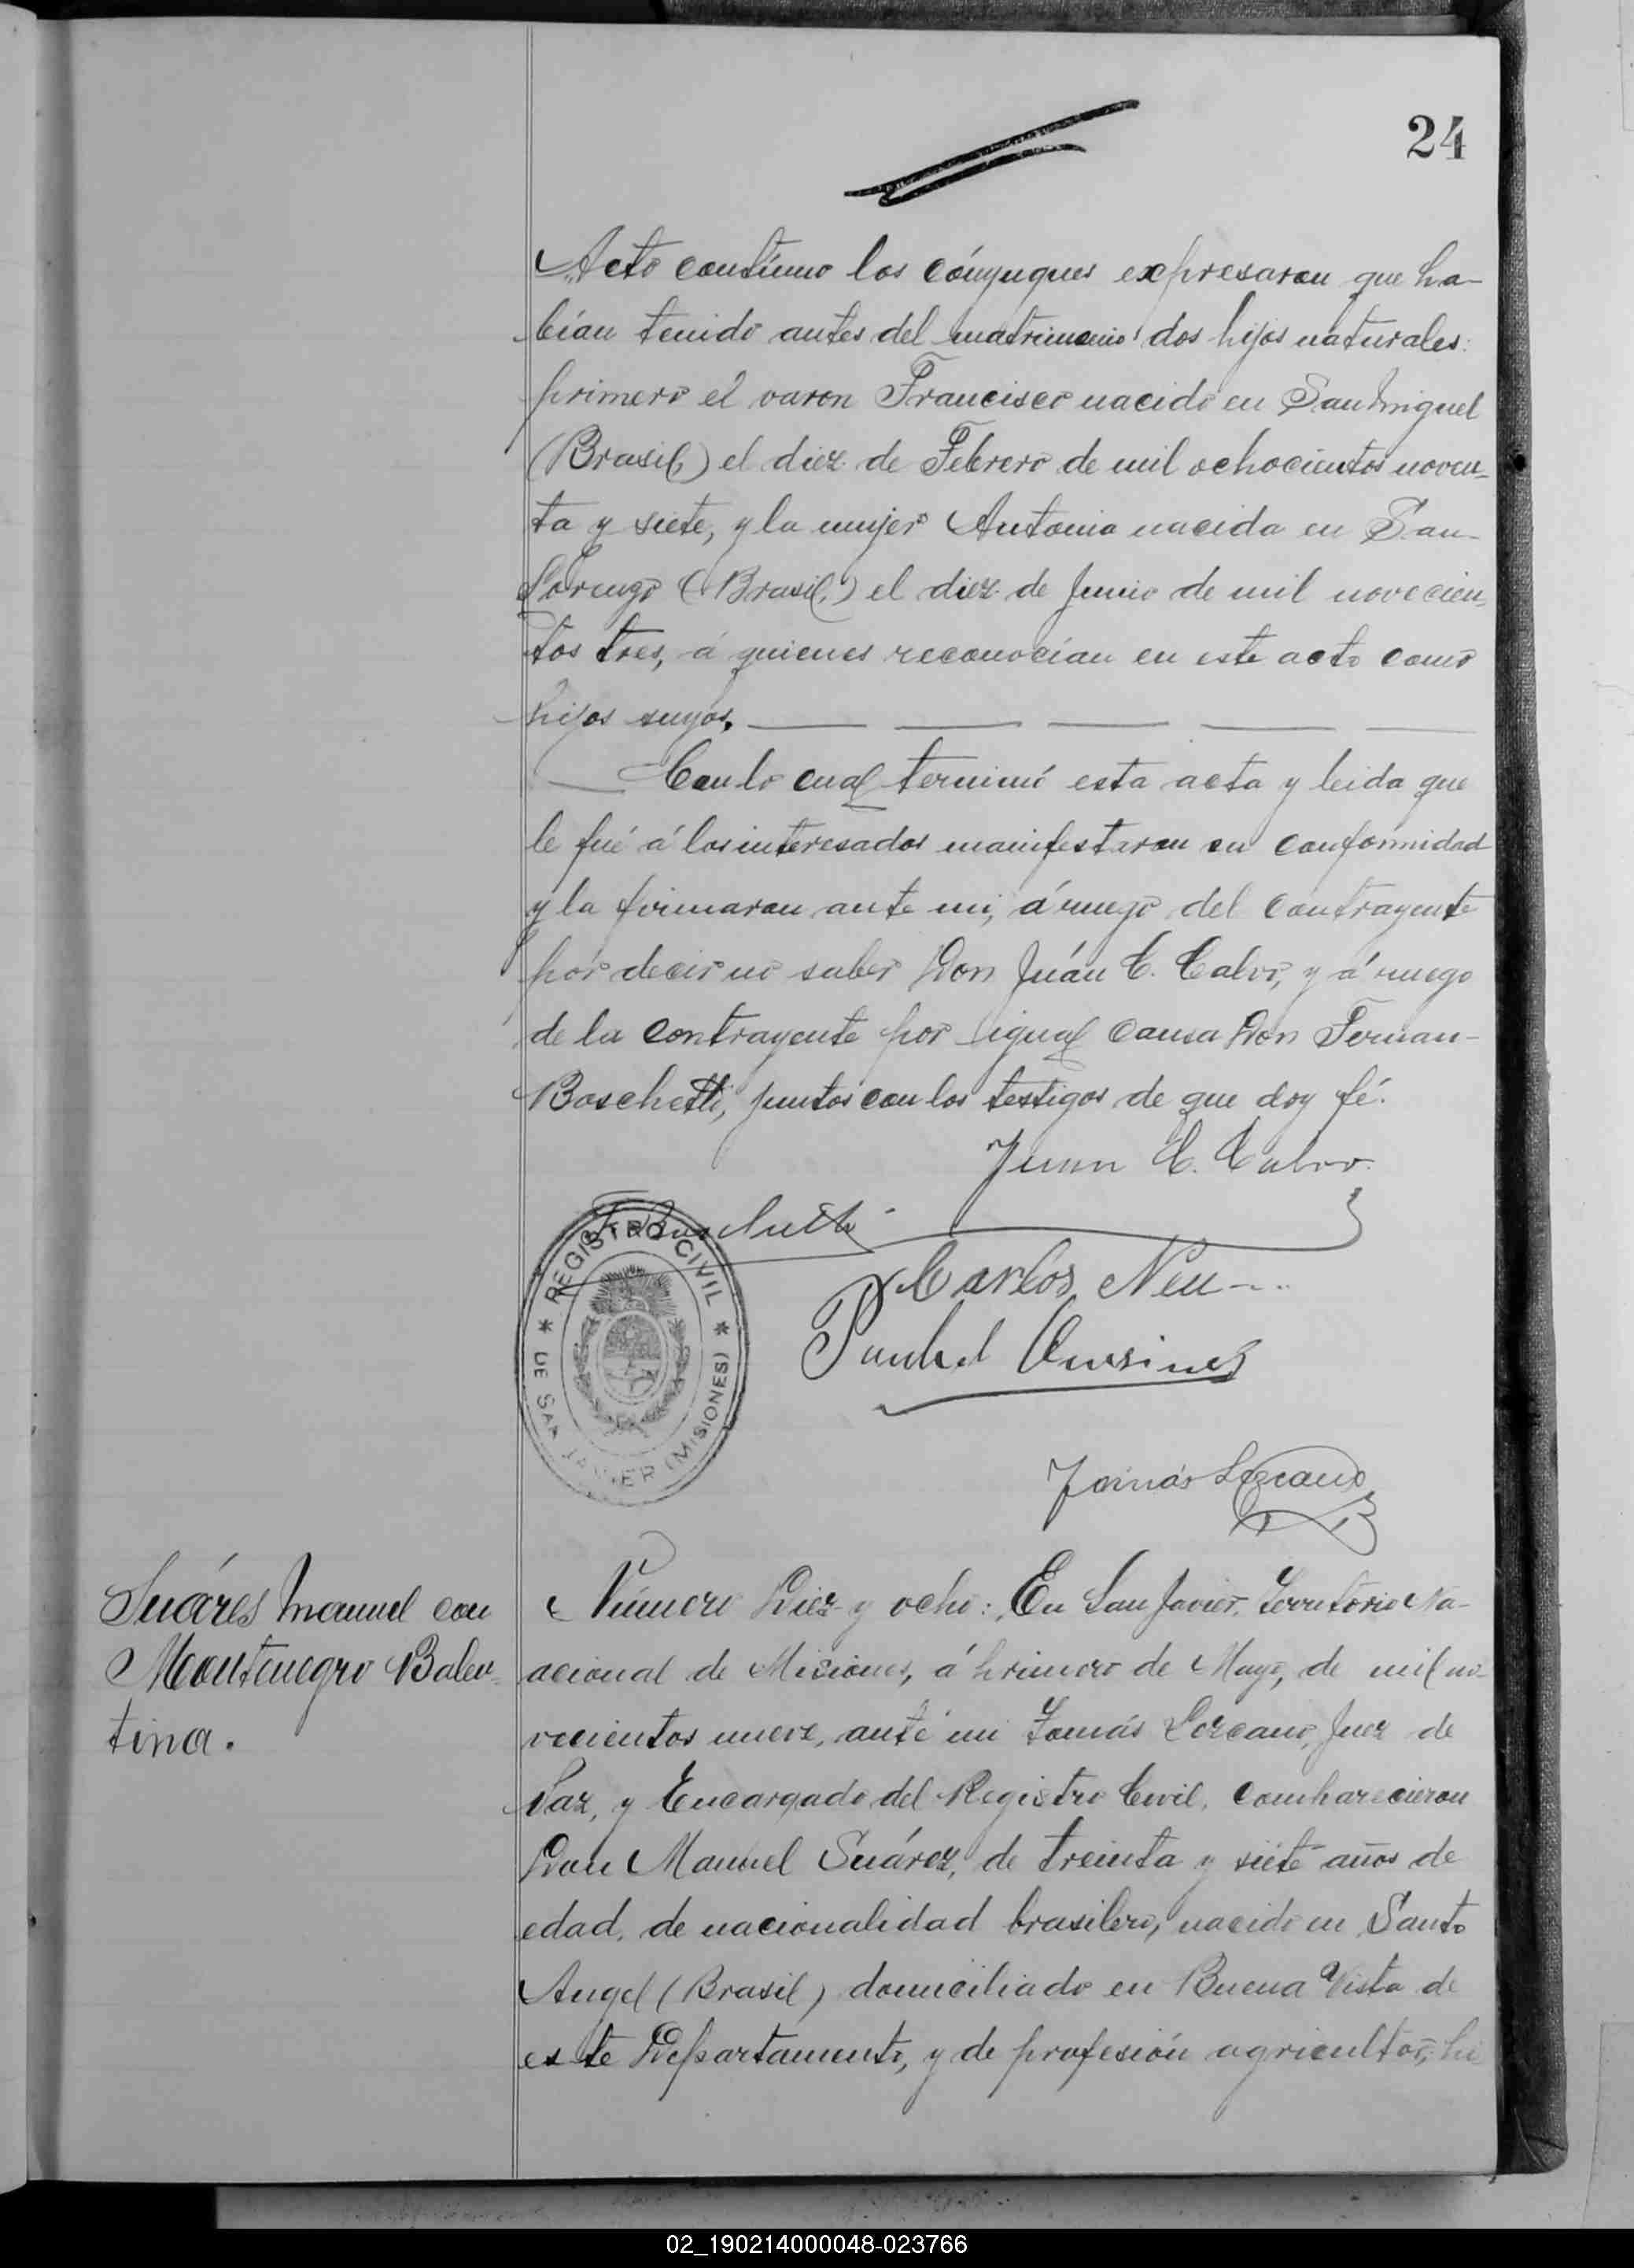 24
Acto contínuo los cónyugues expresaron que ha-
bían tenido antes del matrimonio dos hijos naturales:
primero el varon Francisco nacido en San Miguel
(Brasil) el diez de Febrero de mil ochocientos noven-
ta y siete, y la mujer Antonia nacida en San
Lorenzo (Brasil,) el diez de Junio de mil novecien-
tos tres, á quienes reconocían en este acto como
hijos suyos.
Con lo cual terminó esta acta y leida que
le fué á los interesados manifestaron su conformidad
y la firmaron ante mi, á ruego del contrayente
por decir no saber Don Juán C. Calvo, y á ruego
de la contrayente por igual causa Don Fernan-
Boschetti, juntos con los testigos de que doy fé.
Juan C. Calvo
F. Boschetti
Carlos Neu
REGISTRO CIVIL
DE SAN JAVIER (MISIONES)
Tomás Lezcano
Suáres Manuel con
Montenegro Balen-
tina.
Número Diez y ocho: En San Javier, Territorio Na-
acional de Misiones, á primero de Mayo, de mil no-
vecientos nueve, ante mi Tomás Lezcano, Juez de
Paz, y Encargado del Registro Civil, comparecieron
Don Manuel Suárez, de treinta y siete años de
edad, de nacionalidad brasilero, nacido en Santo
Angel (Brasil) domiciliado en Buena Vista de
este Departamento, y de profesión agricultor, hi
02_190214000048-023766